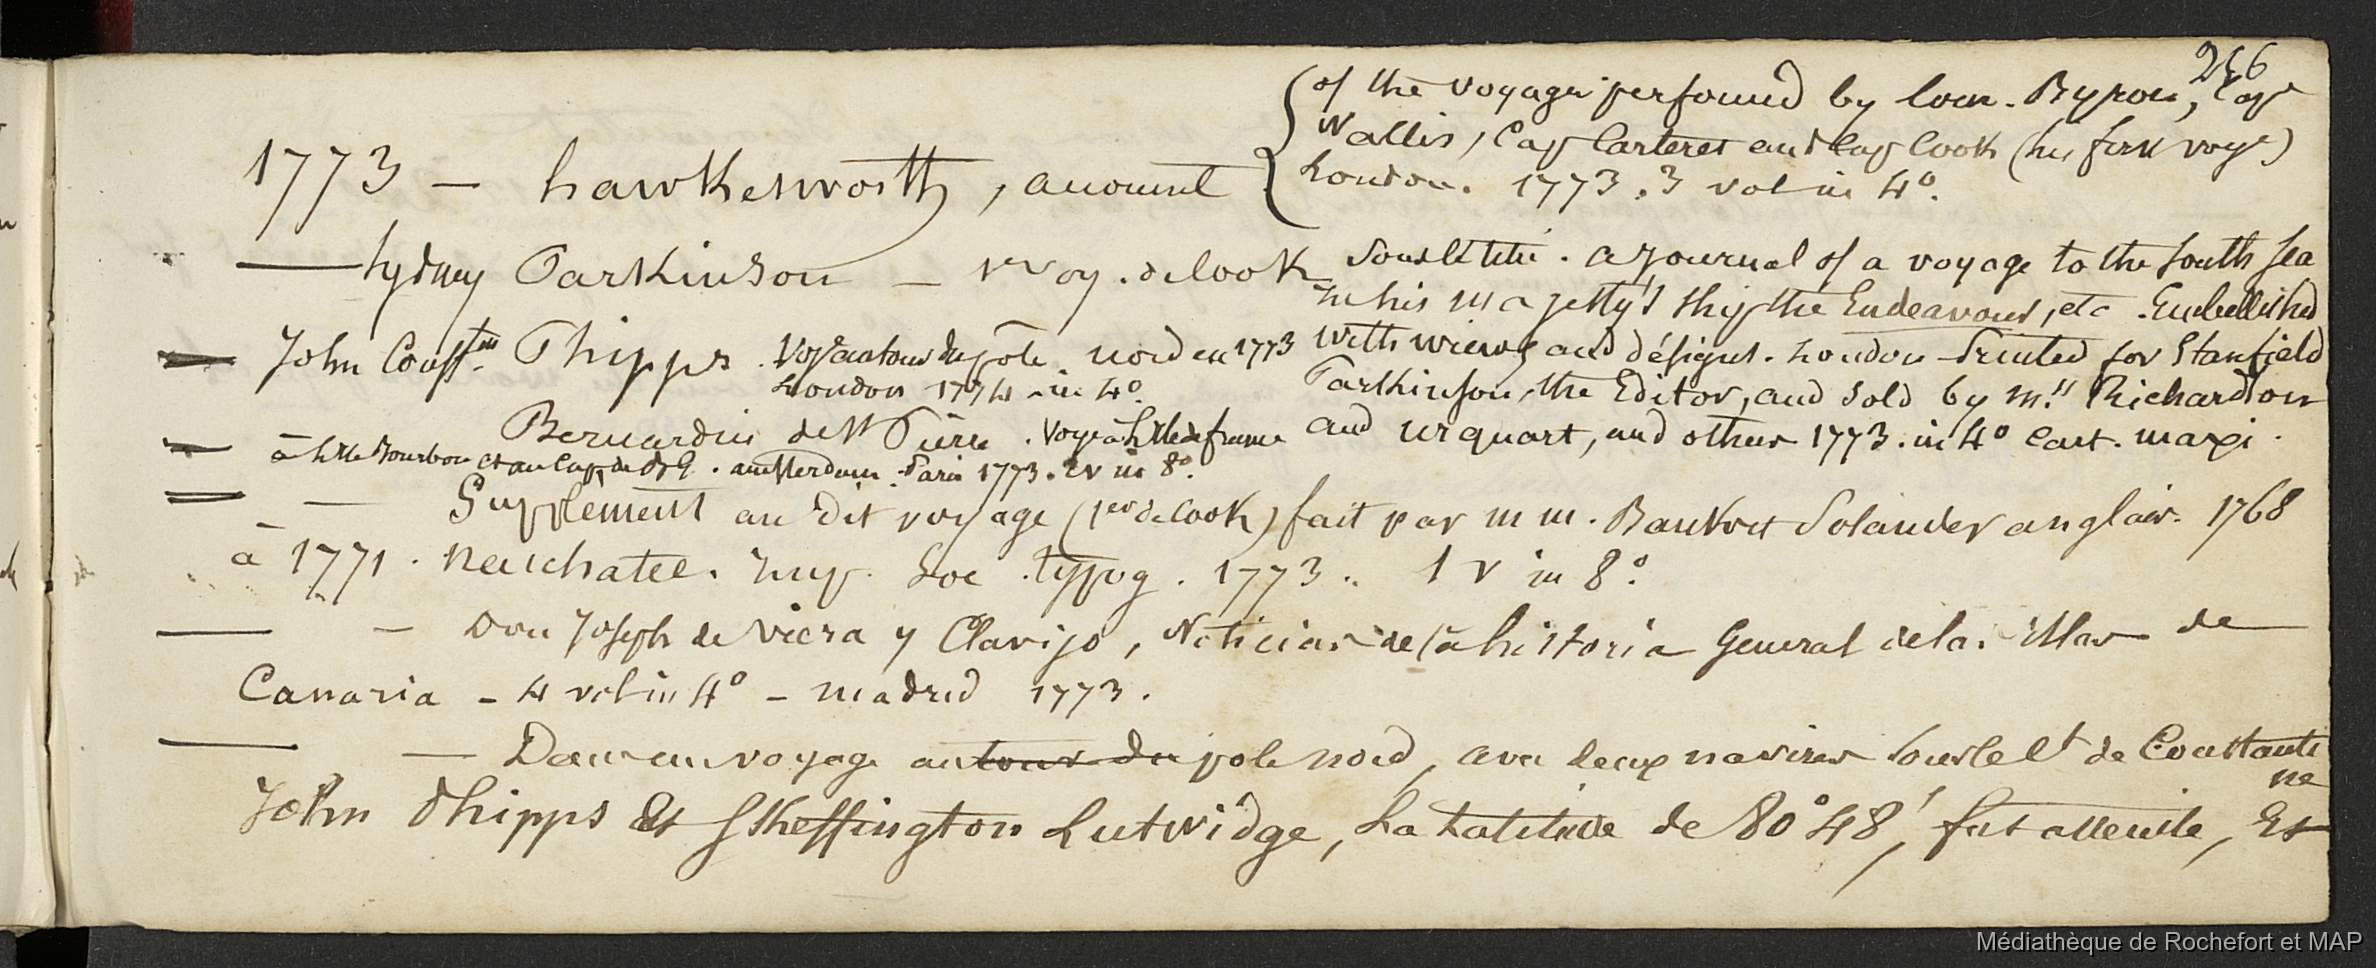 246
of the voyages perfoumed by Com. Byron, Cap
Wallis, Cap Carteret and Cap Cook (his first voye)
1773 — hawkesworth, account
London. 1773. 3 vol in 4°.
— Sydney Parkinson — 1er voy. de Cook
sous le titre. a Journal of a voyage to the South Sea
in his majesty's ship the Endeavour, etc. Embellished
John Constin Phipps. Voye autour du pole nord en 1773
London 1774 - in 4°.
with wiews and désigns. London Printed for Stanfield
Parkinson, the Editor, and sold by mrs Richardson
and urquart, and others 1773. in 4° cart. maxi.
Bernardin de St Pierre. Voye à L'Ile de france
à L'Ile Bourbon et au Cap de B. E. amsterdam. Paris 1773. 2 v in 8°.
— Supplement au dit voyage (1er de Cook) fait par m m. Banks et Solander anglais. 1768
à 1771. Neuchatel. Imp. Soc. typog. 1773.. 1 v in 8°.
— Don Joseph de Viera y Clavijo, Noticias de la historia General de las Islas de
Canaria - 4 vol in 4° - madrid 1773.
— Dans un voyage au tour du pole nord, avec deux navires sous le Ct de Constanti
ne
John Phipps Et Skeffington Lutwidge, La Latitude de 80°48', fut atteinte, Et
Médiathèque de Rochefort et MAP